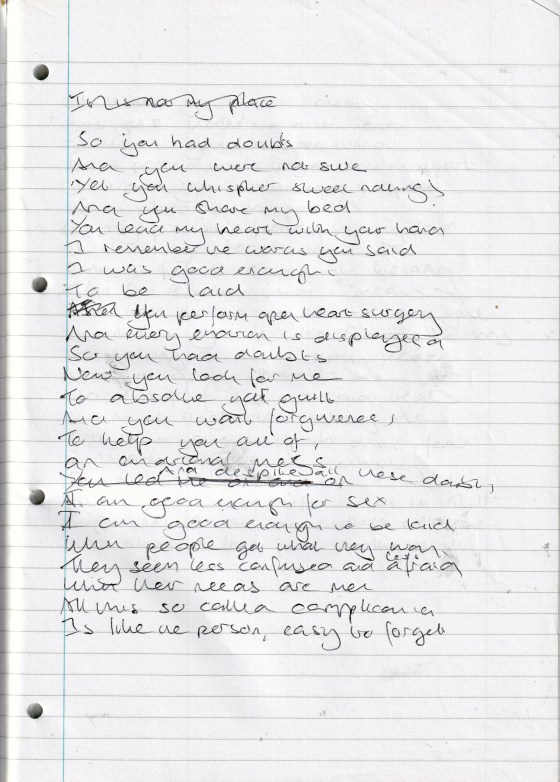 It is not my place
So you had doubts
And you were not sure
Yet you whisper sweet nothings
And you share my bed
You lead my heart with your hand
I remember the words you said
I was good enough
To be laid
You perform open heart surgery
And every emotion is displayed
So you had doubts
Now you look for me
To absolve your guilt
And you want forgiveness
To help you out of
an emotional mess
And despite all of these doubts
I am good enough for sex
I am good enough to be laid
When people get what they want
They seem less confused and less afraid
When their needs are met
All this so called complication
Is like the person, easy to forget